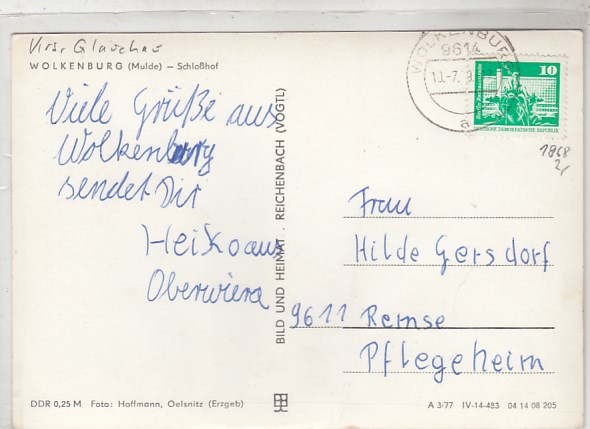 Krs. Glauchau
WOLKENBURG (Mulde) – Schloßhof
Viele Grüße aus
Wolkenburg
sendet Dir
Heiko aus
Oberwiera
BILD UND HEIMAT . REICHENBACH (VOGTL)
WOLKENBURG
9614
a
10
DEUTSCHE DEMOKRATISCHE REPUBLIK
1868
Frau
Hilde Gersdorf
9611 Remse
Pflegeheim
DDR 0,25 M Foto: Hoffmann, Oelsnitz (Erzgeb)
A 3/77 IV-14-483 04 14 08 205